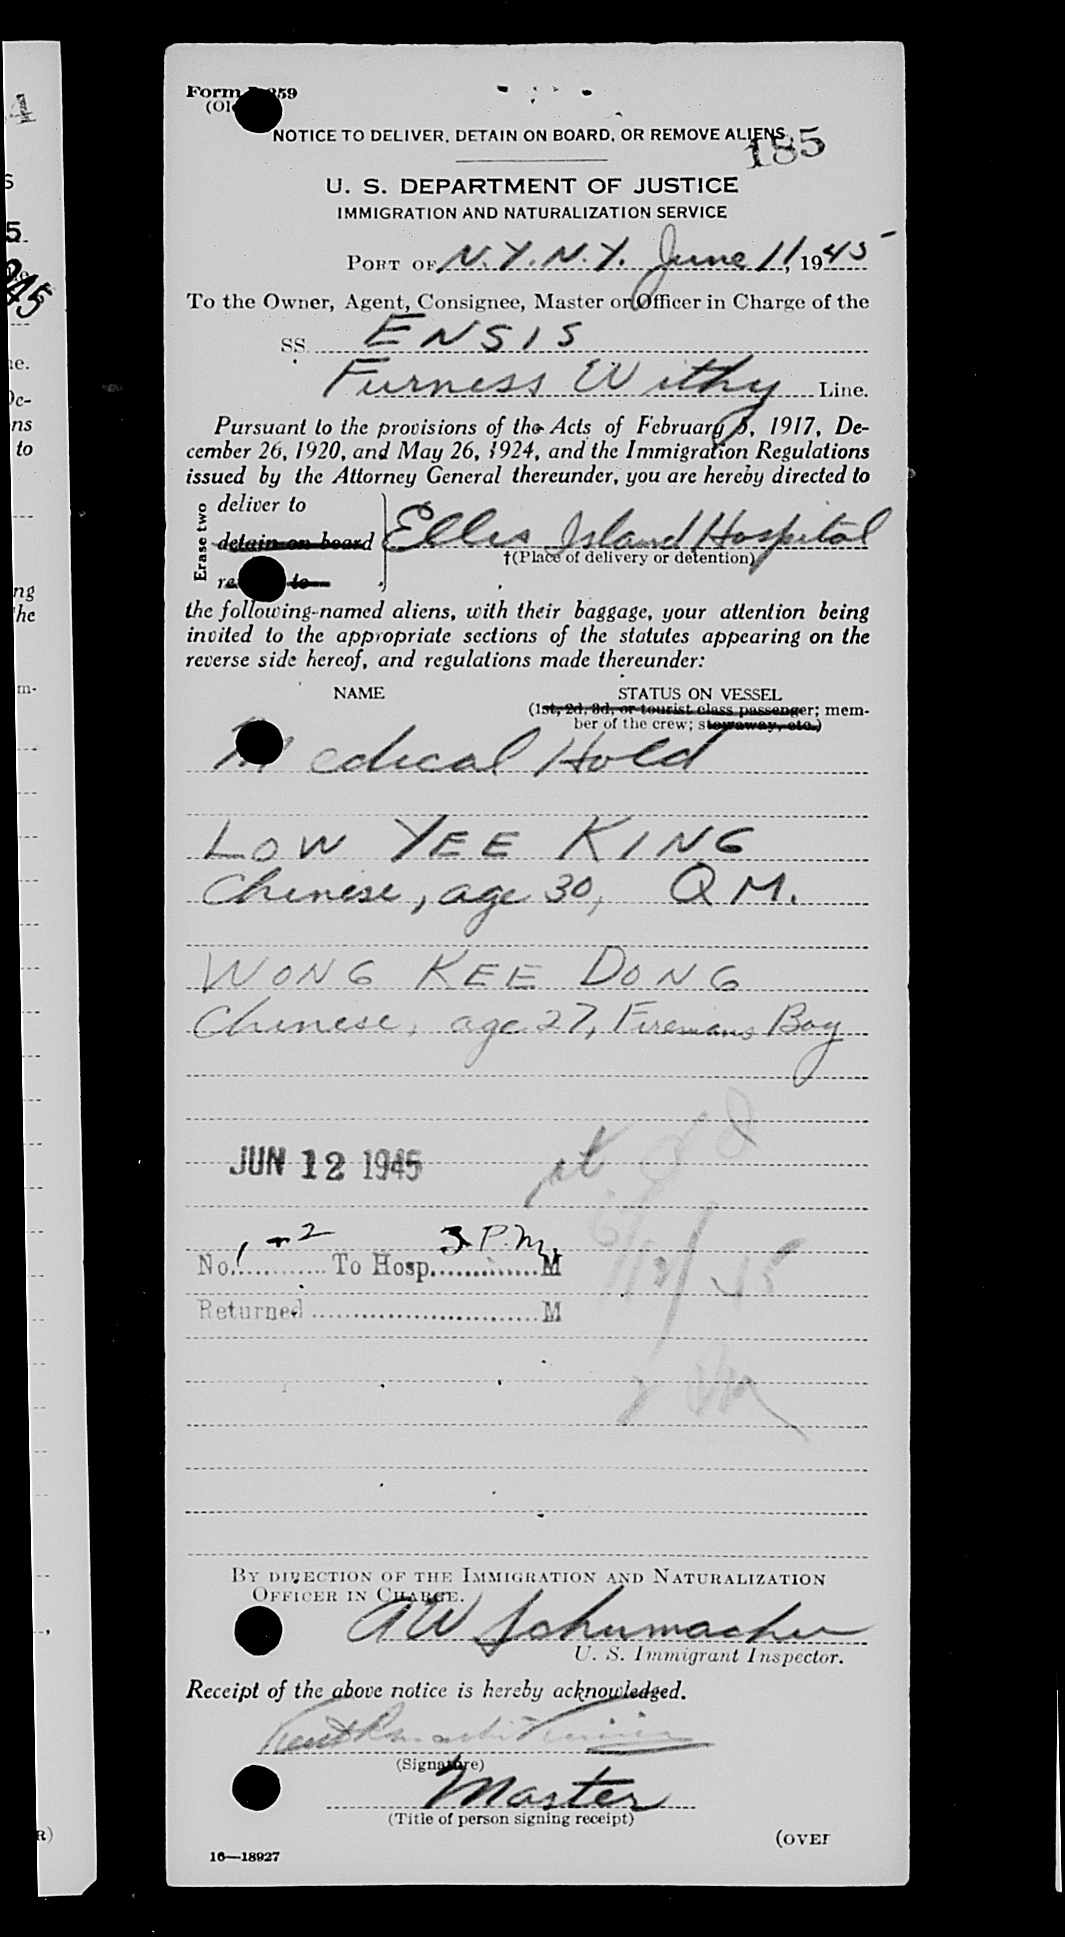 Form 259
NOTICE TO DELIVER, DETAIN ON BOARD, OR REMOVE ALIENS
185
U. S. DEPARTMENT OF JUSTICE
IMMIGRATION AND NATURALIZATION SERVICE
PORT OF N.Y.N.Y. June 11, 1945
To the Owner, Agent, Consignee, Master or Officer in Charge of the
SS. ENSIS
Furness Withy Line.
Pursuant to the provisions of the Acts of February 5, 1917, De-
cember 26, 1920, and May 26, 1924, and the Immigration Regulations
issued by the Attorney General thereunder, you are hereby directed to
Erase two
deliver to
detain on board
to
Ellis Island Hospital
†(Place of delivery or detention)
the following-named aliens, with their baggage, your attention being
invited to the appropriate sections of the statutes appearing on the
reverse side hereof, and regulations made thereunder:
NAME STATUS ON VESSEL
(1st, 2d, 3d, or tourist class passenger; mem-
ber of the crew; stowaway, etc.)
Medical Hold
LOW YEE KING
Chinese, age 30, QM.
WONG KEE DONG
Chinese, age 27, Firemans Boy
JUN 12 1945
No. 1 - 2 To Hosp. 3 P.M. M
Returned M
BY DIRECTION OF THE IMMIGRATION AND NATURALIZATION
OFFICER IN CHARGE.
AW Schumacher
U. S. Immigrant Inspector.
Receipt of the above notice is hereby acknowledged.
(Signature)
Master
(Title of person signing receipt)
(OVER
16—18927